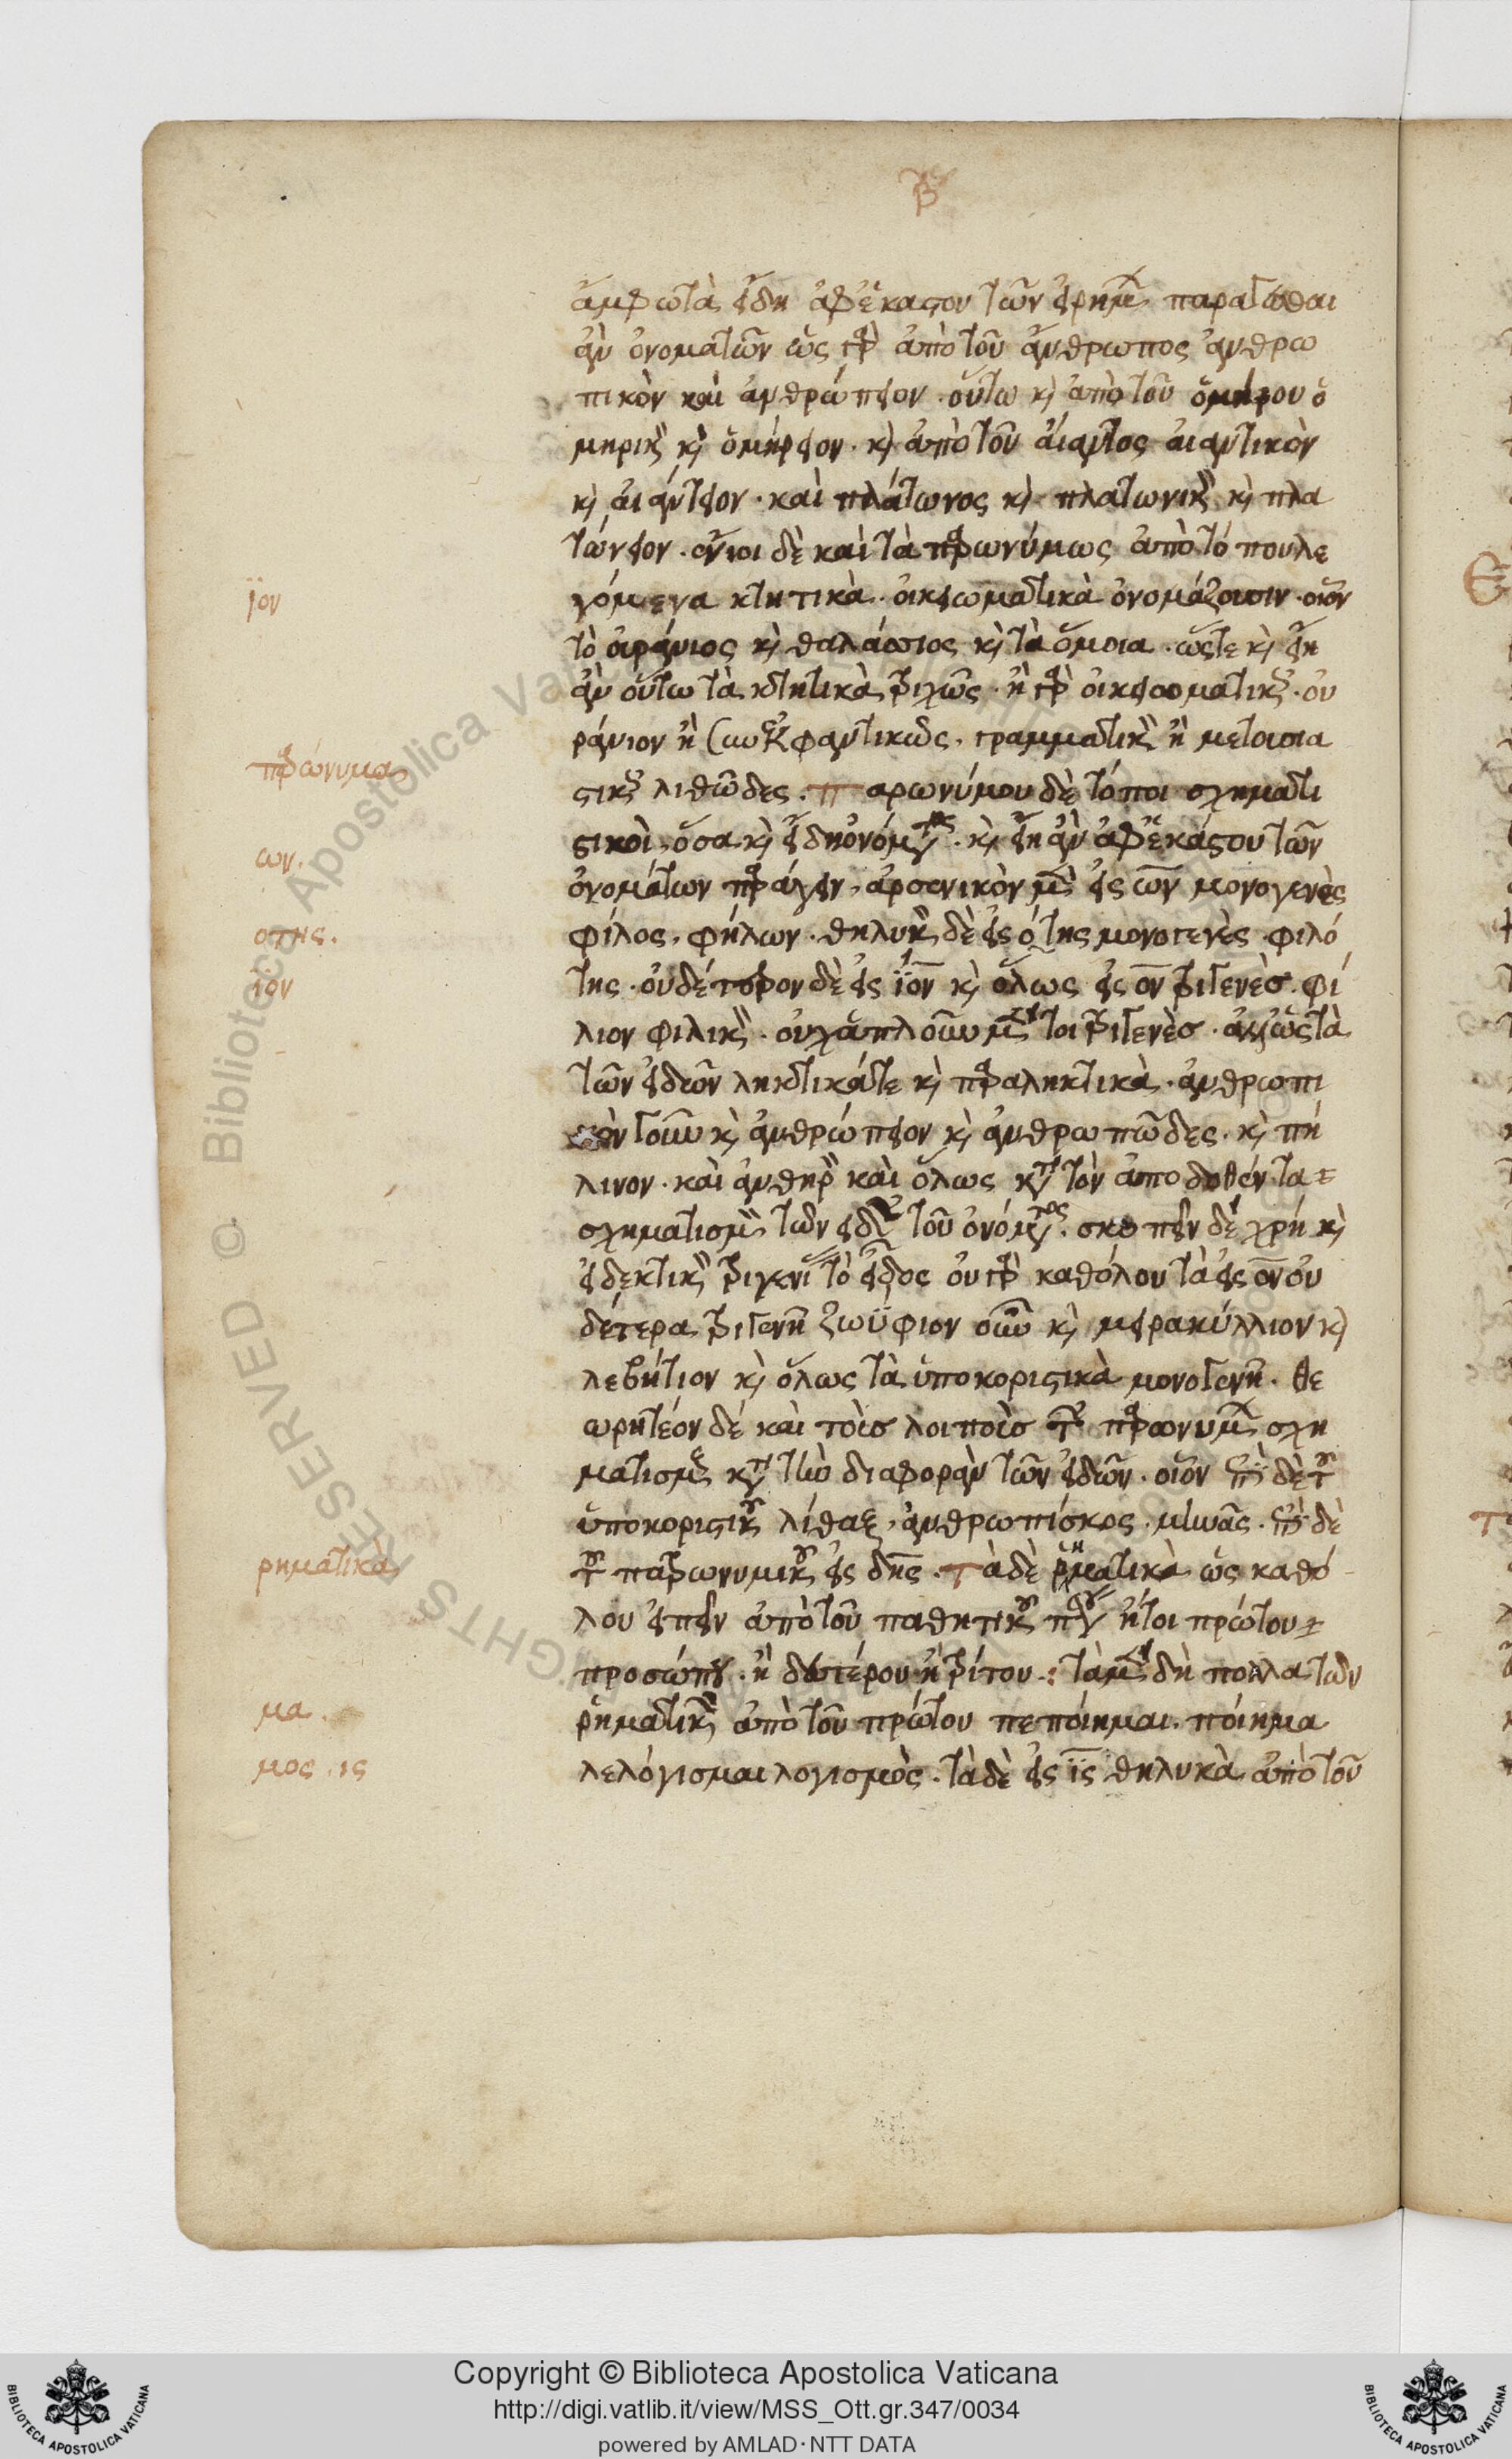 β
ἄμφω τὰ εἴδη ἀφ' ἑκάστου τῶν εἰρημένων παράγεσθαι
ἂν ὀνομάτων ὡς παρὰ ἀπὸ τοῦ ἄνθρωπος ἀνθρω
πικὸν καὶ ἀνθρώπειον. οὕτω κ ἀπὸ τοῦ ὁμήρου ὁ
μηρικὸν κ ὁμήρειον. κ ἀπὸ τοῦ αἴαντος αἰαντικὸν
κ αἰάντειον. καὶ πλάτωνος κ πλατωνικὸν κ πλα
τώνειον. ἔνιοι δὲ καὶ τὰ παρωνύμως ἀπὸ τόπου λε
γόμενα κτητικὰ. οἰκειωματικὰ ὀνομάζουσιν. οἷον
ϊον
τὸ οὐράνιος κ θαλάσσιος κ τὰ ὅμοια. ὥστε κ εἴη
ἂν οὕτω τὰ κτητικὰ τριχῶς. ἢ παρὰ οἰκειοματικὸν. οὐ
ράνιον ἢ φαντικῶς. γραμματικὸν ἢ μετουσια
παρώνυμα
στικὸν λιθῶδες. παρωνύμου δὲ τόποι σχηματι
στικοὶ, ὅσα κ εἴδη ὀνόματος. κ εἴη ἂν ἀφ' ἑκάστου τῶν
ων.
ὀνομάτων παράγειν. ἀρσενικὸν μὲν εἰς ων μονογενὲς
φίλος, φήλων. θηλυκὸν δὲ εἰς ότης μονογενὲς. φιλό
οτης.
της. οὐδέτερον δὲ εἰς ϊον κ ὅλως εἰς ον τριγενὲς. φί
ϊον
λιον φιλικὸν. οὐχ ἁπλοῦν μέντοι τριγενὲς. ἀλλ' ὡς τὰ
τῶν εἰδῶν ληκτικά τε κ παραληκτικὰ. ἀνθρωπι
κὸν γοῦν κ ἀνθρώπειον κ ἀνθρωπῶδες. κ πή
λινον. καὶ ἀνθηρὸν καὶ ὅλως κατὰ τὸν ἀποδοθέντα
σχηματισμὸν τῶν εἰδῶν τοῦ ὀνόματος. σκοπεῖν δὲ χρή κ
εἰ δεκτικὸν τριγενὲς τὸ εἶδος οὐ παρὰ καθόλου τὰ εἰς ον οὐ
δέτερα τριγενῆ ζωΰφιον οὖν κ μειρακύλλιον κ
λεβήτιον κ ὅλως τὰ ὑποκοριστικὰ μονογενῆ. θε
ωρητέον δέ καὶ τοῖς λοιποῖς τῶν παρωνύμων σχη
ματισμοῖς κατὰ τὴν διαφορὰν τῶν εἰδῶν. οἷον ἐπὶ δὲ τοῦ
ὑποκοριστικοῦ λίθαξ, ἀνθρωπίσκος. μιννᾶς. ἐπὶ δὲ
τοῦ πατρωνυμικοῦ εἰς δης. τὰ δὲ ῥηματικὰ ὡς καθό
ρηματικὰ
λου εἰπεῖν ἀπὸ τοῦ παθητικοῦ παρακειμένου ἤτοι πρώτου
προσώπου. ἢ δευτέρου ἢ τρίτου. τὰ μὲν δὴ πολλὰ τῶν
ῥηματικῶν ἀπὸ τοῦ πρώτου πεποίημαι. ποίημα
μα.
λελόγισμαι λογισμὸς. τὰ δὲ εἰς ϊς θηλυκὰ ἀπὸ τοῦ
μος. ις
RIGHTS RESERVED © Biblioteca Apostolica Vaticana
Copyright © Biblioteca Apostolica Vaticana
http://digi.vatlib.it/view/MSS_Ott.gr.347/0034
powered by AMLAD · NTT DATA
BIBLIOTECA APOSTOLICA VATICANA
BIBLIOTECA APOSTOLICA VATICANA